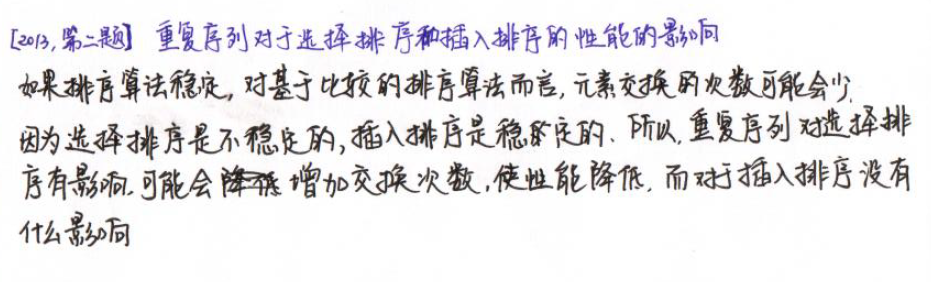 [2013,第二题] 重复序列对于选择排序和插入排序的性能的影响
如果排序算法稳定,对基于比较的排序算法而言,元素交换的次数可能会少.
因为选择排序是不稳定的,插入排序是稳定的.所以,重复序列对选择排
序有影响.可能会增加交换次数,使性能降低.而对于插入排序没有
什么影响